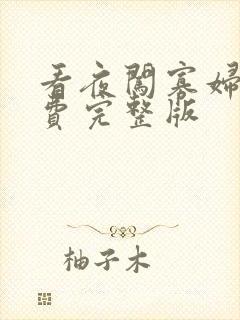 看夜闖寡婦
費完整版
柚子木